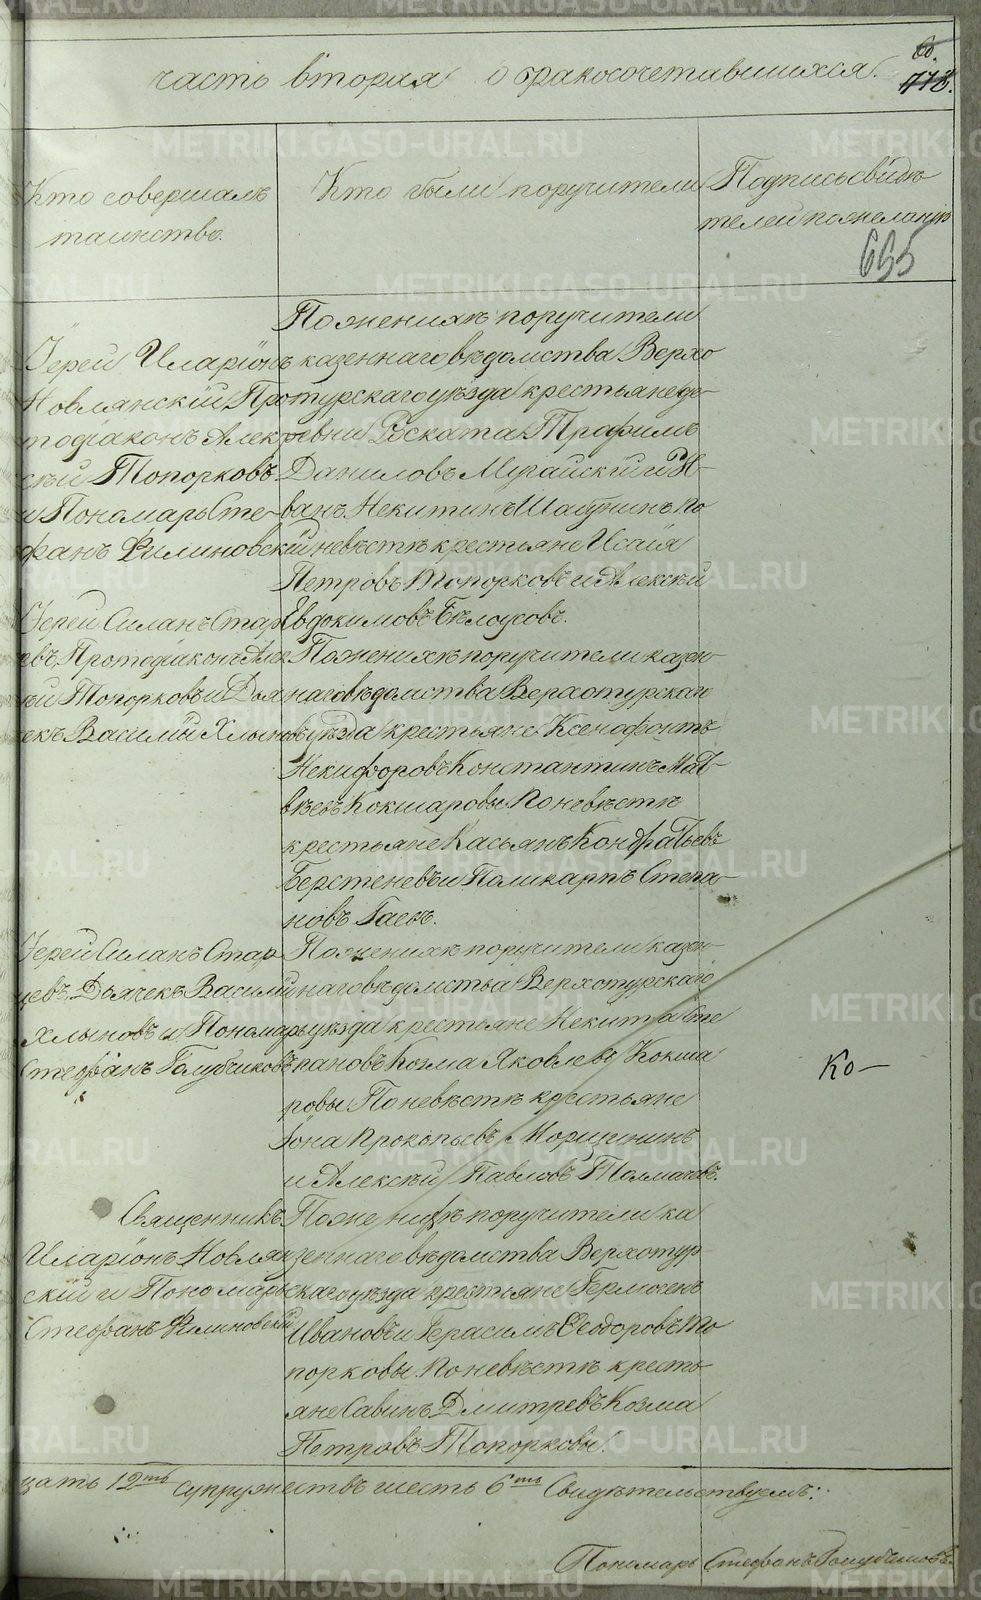 часть вторая о бракосочетавшихся.
Кто совершалъ
таинство.
Кто были поручители
Подпись свидѣ
телей пожеланію
695
Іерей Иларіонъ
Новлянскій, Про
тодіаконъ Алек
сѣй Топорковъ
и Пономарь Сте-
фанъ Филиновскій
По женихѣ поручители
казеннаго вѣдомства Верхо
турскаго уѣзда крестьяне де-
ревни Роската Трафимъ
Даниловъ Мугайскій и И-
ванъ Некитинъ Шабунинъ по
невѣстѣ крестьяне Исаія
Петровъ Топорковъ и Алексѣй
Евдокимовъ Бѣлоусовъ.
Іерей Силанъ Стар
евъ, Протодіаконъ Алек
ѣй Топорковъ и Дья
екъ Василій Хлыновъ
По женихѣ поручители казен
наго вѣдомства Верхотурскаго
уѣзда крестьяне Ксенофонтъ
Некифоровъ Константинъ Мат-
вѣевъ Кокшаровы По невѣстѣ
крестьяне Касьянъ Кондратьевъ
Берстеневъ и Поликарпъ Степа-
новъ Гаевъ.
Іерей Силанъ Стар
цевъ, Дьячекъ Василій
Хлыновъ и Пономарь
Стефанъ Голубчиковъ
По женихѣ поручители казен-
наго вѣдомства Верхотурскаго
уѣзда крестьяне Некита Сте
пановъ Козма Яковлевъ Кокша
ровы По невѣстѣ крестьяне
Іона Прокопьевъ Морщининъ
и Алексѣй Павловъ Толмачевъ.
Ко-
Священникъ
Иларіонъ Новлян
скій и Пономарь
Стефанъ Филиновскій
По женихѣ поручители ка
зеннаго вѣдомства Верхотур
скаго уѣзда крестьяне Гермогенъ
Ивановъ и Герасимъ Феодоровъ То
порковы. По невѣстѣ кресть
яне Савинъ Дмитревъ Козма
Петровъ Топорковы.
цать 12ть супружествъ шесть 6ть Свидѣтельствуемъ:
Пономарь Стефанъ Голубчиковъ.
METRIKI.GASO-URAL.RU